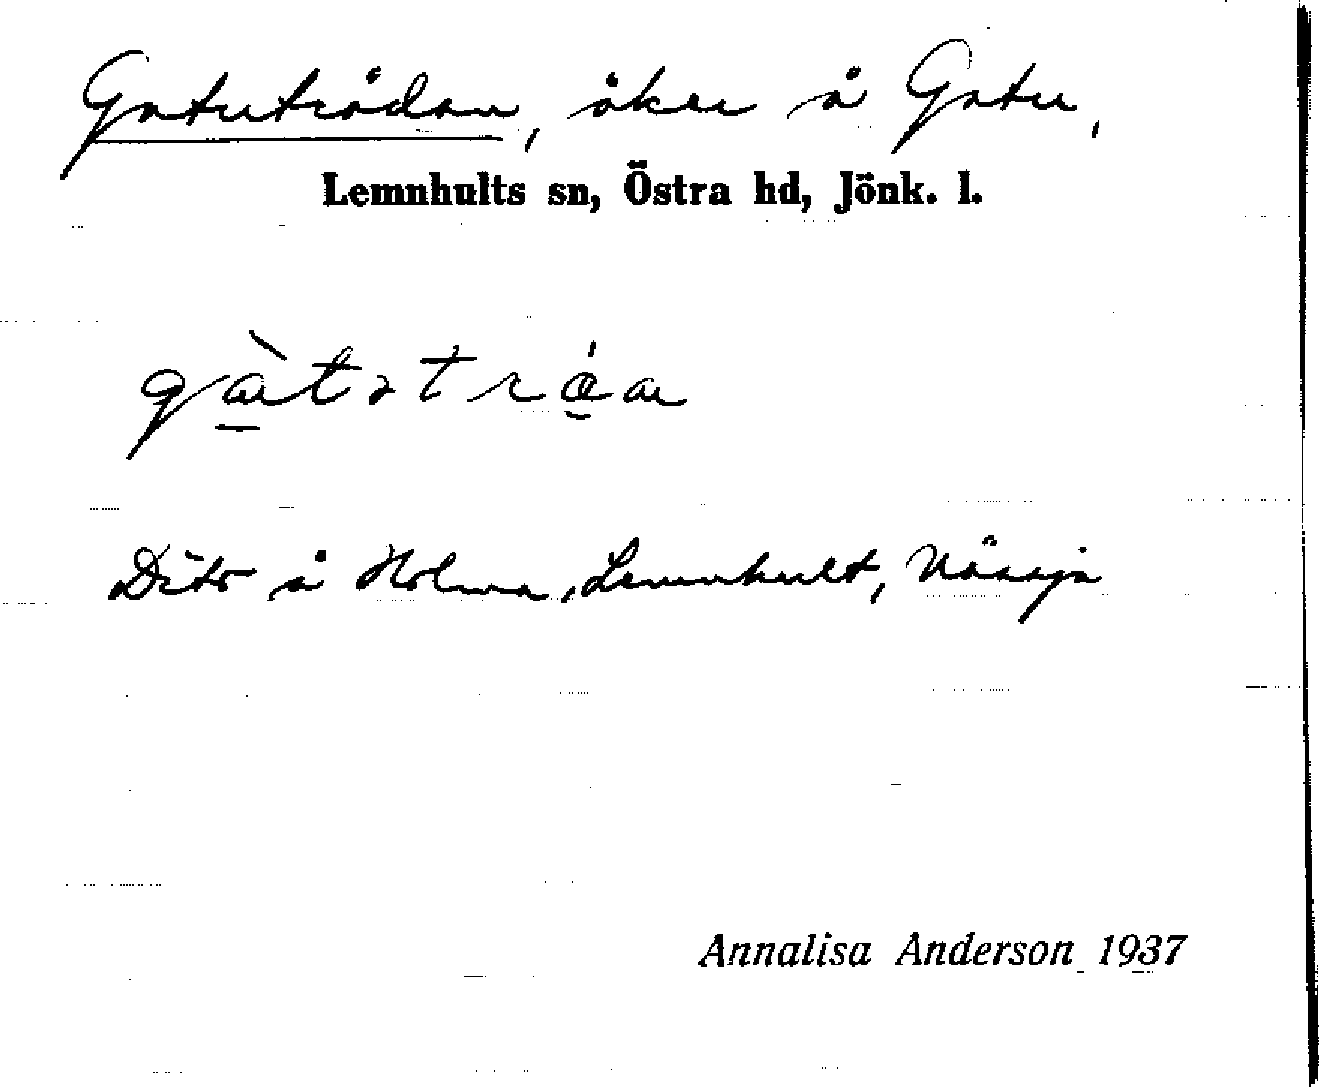 Gatuträdan, åker å Gatu,
Lemnhults sn, Östra hd, Jönk. l.
Dito å Holma, Lemnhult, Nässja
Annalisa Anderson 1937